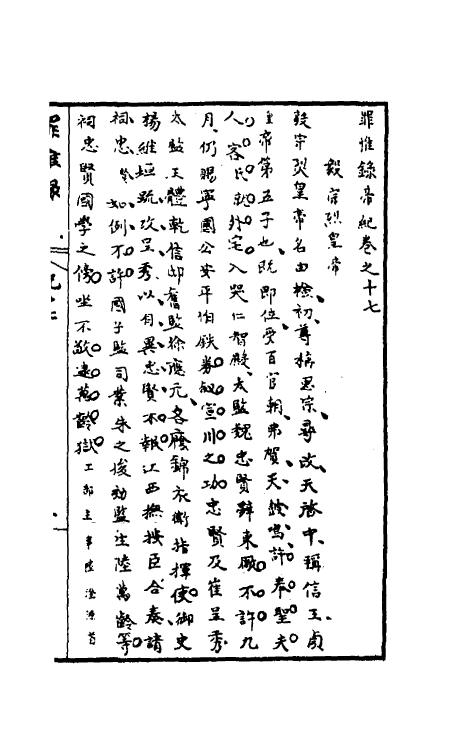 罪惟錄帝紀卷之十七
毅宗烈皇帝
毅宗烈皇帝名由檢初尊稱思宗尋改天啓中稱信王貞
皇帝第五子也既即位受百官朝弗賀天鼓鳴許奉聖夫
人客氏就外宅入哭仁智殿太監魏忠賢辭東厰不許九
月仍賜寧國公安平伯鉄券敘宣川之功忠賢及崔呈秀
太監王體乾信邸舊監徐應元各廕錦衣衛指揮使御史
楊維垣疏攻呈秀以自異忠賢不報江西撫按臣合奏請
祠忠賢如例不許國子監司業朱之俊劾監生陸萬齡等
祠忠賢國學之傍坐不敬逮萬齡獄工部主事陸澄源首
罪惟錄